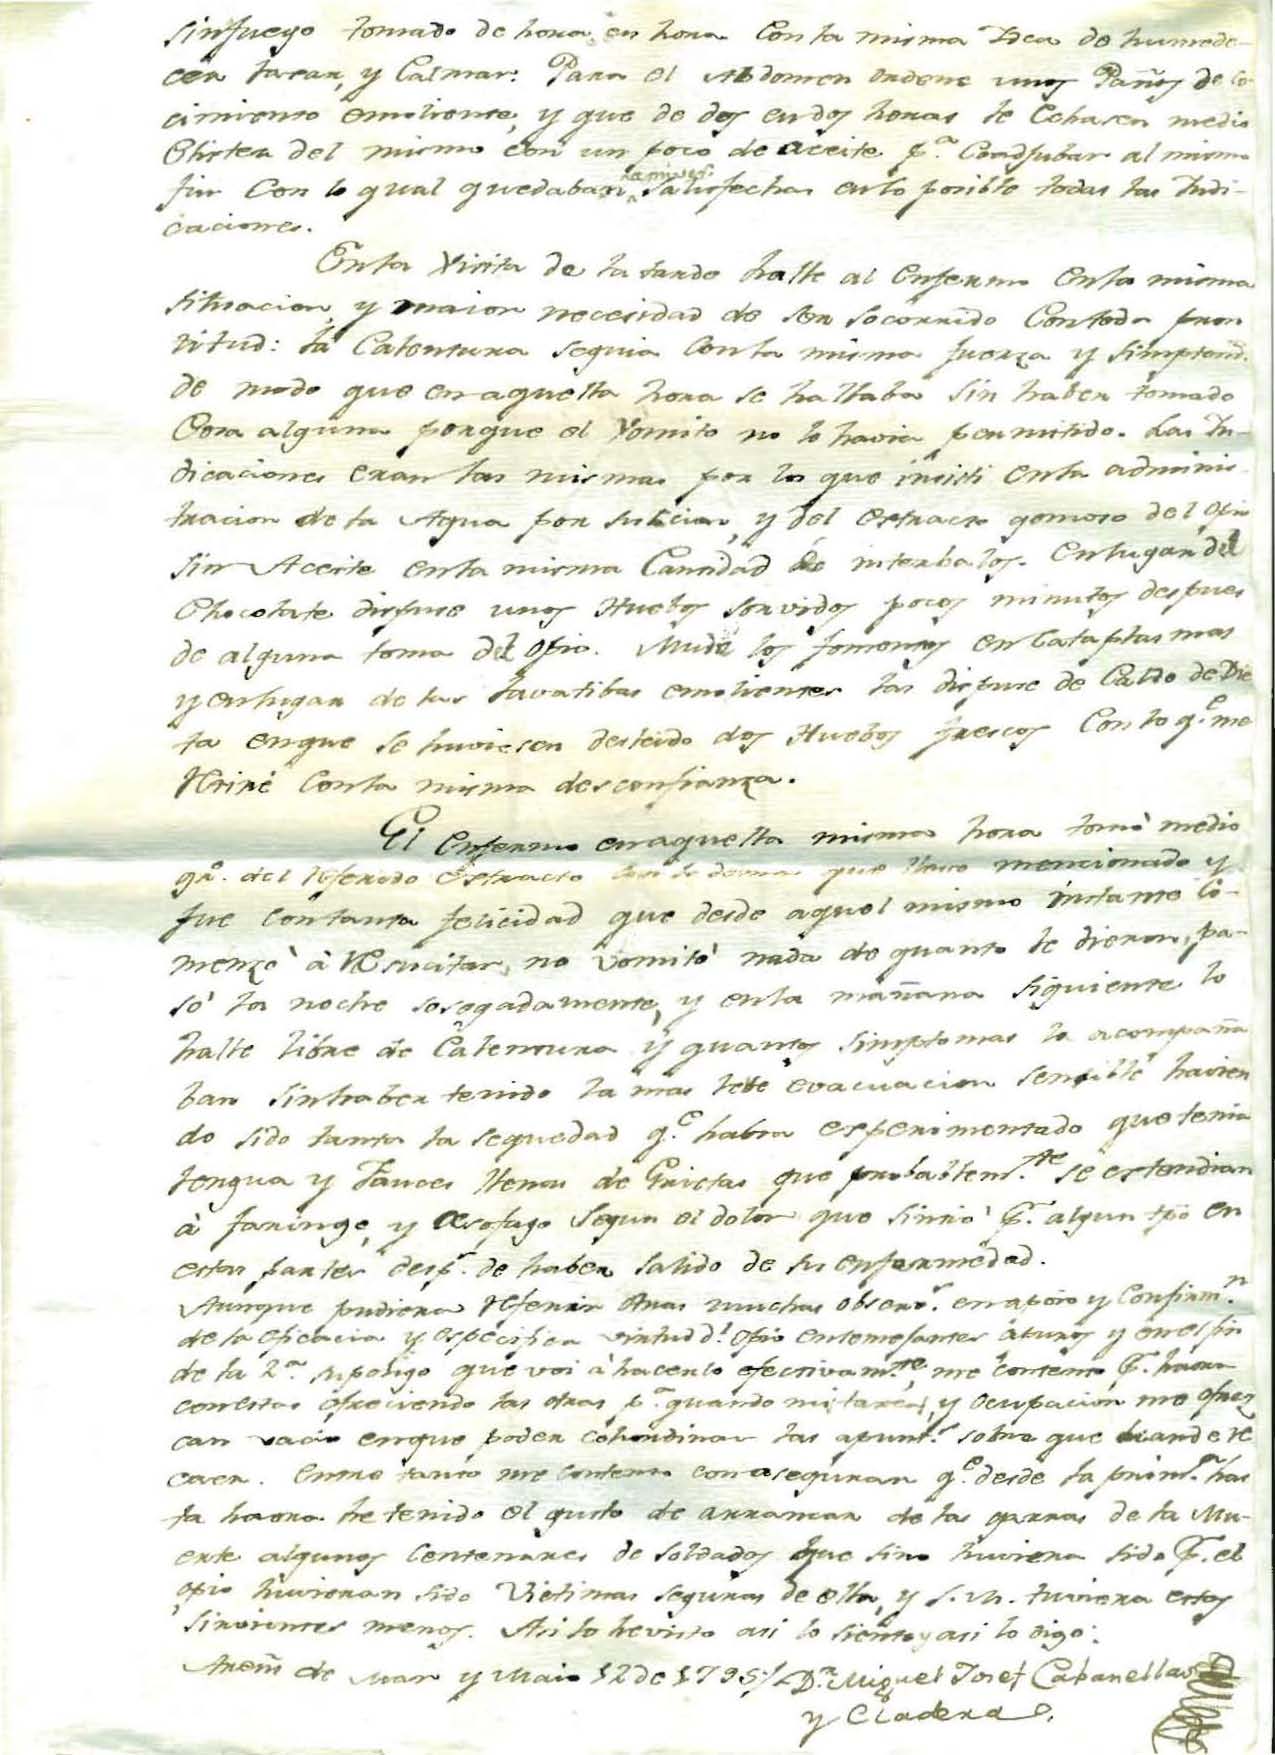 sinfuego tomado de hora en hora Con la misma Idea de humede-
cer laxar, y Calmar: Para el Abdomen ordene unos Paños de co-
cimiento emoliente, y que de dos en dos horas le Echasen medio
Clister del mismo con un poco de aceite p.ª Coadjubar al mismo
fin Con lo qual quedaban satisfechas enlo posible todas las Indi-
caciones.
Enla Visita de la tarde halle al Enfermo Enla misma
situacion, y maior necesidad de ser socorrido Contoda pron
titud: la Calentura seguia Conla misma fuerza y simptom.
de modo que enaquella hora se hallaba sin haber tomado
Cosa alguna porque el Vomito no lo havia permitido. Las In-
dicaciones eran las mismas por lo que insisti enla adminis-
tracion de la Agua por sulicion, y del extracto gomoso del Opio
sin Aceite enla misma Cantidad de interbalos. Enlugar del
Chocolate dispuse unos Huebos sorvidos pocos minutos despues
de alguna toma del Opio. Mudé los fomentos en Cataplasmas
y enlugar de las lavatibas emolientes las dispuse de Caldo de Die
ta enque se huviesen desleido dos Huebos frescos Con lo q.e me
Retiré Conla misma desconfianza.
El Enfermo enaquella misma hora tomó medio
gr. del Referido Extracto que llevo mencionado y
fue contanta felicidad que desde aquel mismo instante Co-
menzó à Resucitar, no vomitó nada de quanto le dieron, pa-
só la noche sosegadamente, y enla mañana siguiente lo
halle libre de Calentura y quantos simptomas lo acompaña
ban sinhaber tenido la mas lebe evacuacion sensible havien
do sido tanta la sequedad q.e habia esperimentado que tenia
lengua y Fauces llenas de Grietas que probablem.te se estendian
à faringe, y esofago segun el dolor que sintió p.r algun tpo en
estas partes desp.s de haber salido de su enfermedad.
Aunque pudiera Referir otras muchas observ.s enapoio y Confirm.n
de la eficacia y especifica virtud d.l Opio entemejantes apuros y enelfin
de la 2.ª supongo que voi à hacerlo efectivam.te me contento p.r haora
conestas ofreciendo las otras p.ª quando mis tareas, y Ocupacion me ofrez
can vacio enque poder cohordinar las apunt.s sobre que hande re
caer. Entre tanto me contento conasegurar q.e desde la prim.ª has
ta haora he tenido el gusto de arrancar de las garras de la Mu-
erte algunos Centenares de soldados que sino huviera sido p.r el
opio huvieran sido Victimas seguras de ella, y S.M. tuviera estos
sirvientes menos. Asi lo hevisto asi lo siento y asi lo digo:
Arenis de Mar y Maio 12 de 1795 / D.n Miguel Josef Cabanellas
y Cladera.